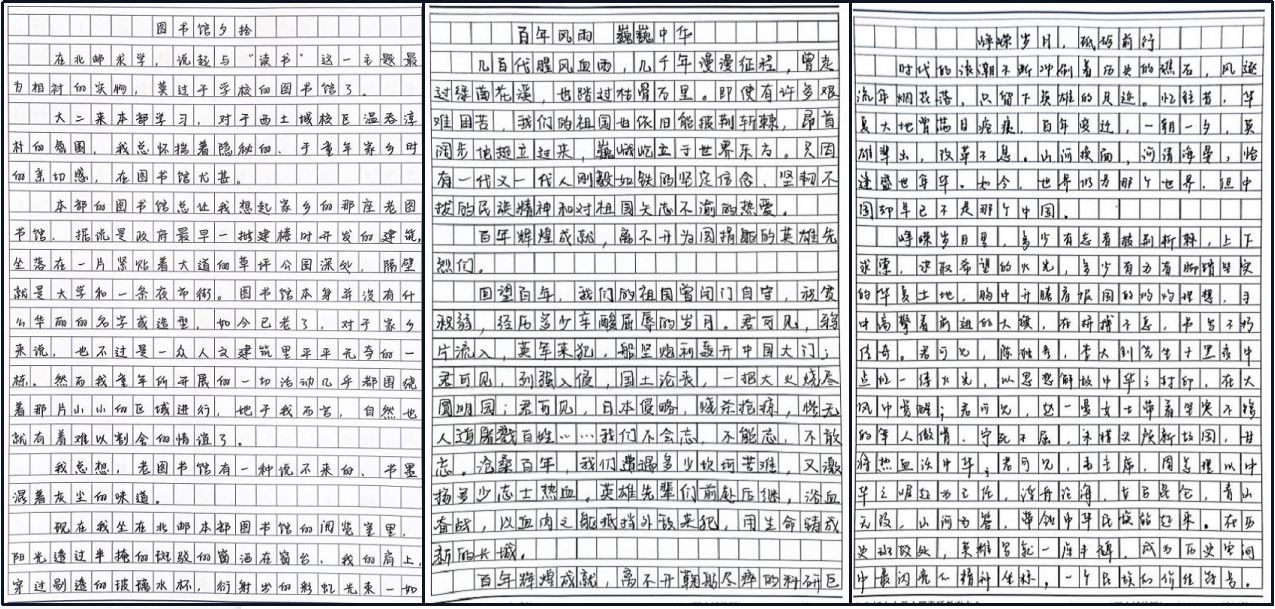 图书馆夕拾
在北邮求学，说起与“读书”这一主题最
为相衬的实物，莫过于学校的图书馆了。
大二来本部学习，对于西土城校区温吞淳
朴的氛围，我总怀揣着隐秘的、于童年家乡时
的亲切感，在图书馆尤甚。
本部的图书馆总让我想起家乡的那座老图
书馆。据说是政府最早一批建楼时开发的建筑，
坐落在一片紧贴着大道的草坪公园深处，隔壁
就是大学和一条夜市街。图书馆本身并没有什
么华丽的名字或造型，如今已老了，对于家乡
来说，也不过是一众人文建筑里平平无奇的一
栋。然而我童年所开展的一切活动几乎都围绕
着那片小小的区域进行，她于我而言，自然也
就有着难以割舍的情谊了。
我总想，老图书馆有一种说不来的、书墨
混着灰尘的味道。
现在我坐在北邮本部图书馆的阅览室里，
阳光透过半掩的斑驳的窗洒在窗台、我的肩上，
穿过剔透的玻璃水杯，衍射出的彩虹光束一如
百年风雨 巍巍中华
几百代腥风血雨，几千年漫漫征程，曾走
过绿茵花溪，也踏过枯骨万里。即使有许多艰
难困苦，我们的祖国也依旧能披荆斩棘，昂首
阔步地挺立过来，巍峨屹立于世界东方。只因
有一代又一代人刚毅如铁的坚定信念、坚韧不
拔的民族精神和对祖国矢志不渝的热爱。
百年辉煌成就，离不开为国捐躯的英雄先
烈们。
回望百年，我们的祖国曾闭门自守，积贫
积弱，经历多少辛酸屈辱的岁月。君可见，鸦
片流入，英军来犯，船坚炮利轰开中国大门；
君可见，列强入侵，国土沦丧，一把大火烧尽
圆明园；君可见，日本侵略，烧杀抢掠，惨无
人道屠戮百姓……我们不会忘，不能忘，不敢
忘。沧桑百年，我们遭遇多少坎坷苦难，又激
扬多少志士热血。英雄先辈们前赴后继，浴血
奋战，以血肉之躯抵挡外敌来犯，用生命铸成
新的长城。
百年辉煌成就，离不开鞠躬尽瘁的科研巨
峥嵘岁月，砥砺前行
时代的浪潮不断冲刷着历史的礁石，风逐
流年烟花落，只留下英雄的足迹。忆往昔，华
夏大地曾满目疮痍，百年变迁，一朝一夕，英
雄辈出，改革不息。山河换面，河清海晏，恰
逢盛世年华。如今，世界仍为那个世界，但中
国却早已不是那个中国。
峥嵘岁月里，多少有志者披荆斩棘，上下
求索，求取希望的火光，多少有为者脚踏坚实
的华夏土地，胸中开腾着报国的灼灼理想，手
中高擎着前进的大旗，在拼搏不息，书写不朽
传奇。君可见，陈独秀，李大钊先生于黑夜中
点燃一缕火光，以思想解放中华之封印，在大
风中觉醒；君可见，赵一曼女士带着坚实不移
的军人傲骨，宁死不屈，未惜头颅新故国，甘
将热血沃中华；君可见，毛主席，周总理以中
华之崛起为己任，浮舟沧海，立马昆仑，青山
无改，山河为答，带领中华民族站起来。在历
史斑驳处，英雄写就一座丰碑，成为历史空间
中最闪亮的精神坐标，一个民族的价值符号。